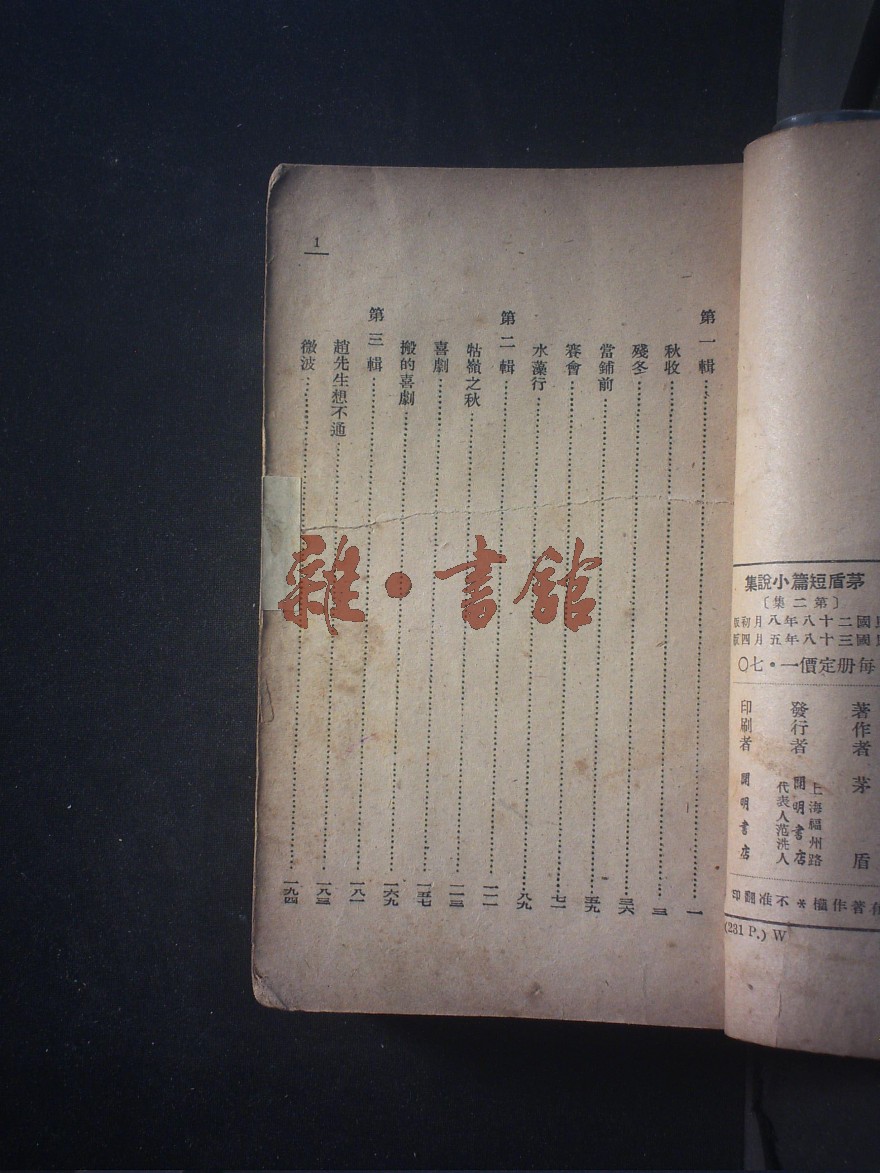 1
第一輯 一
秋收 三
殘冬 三六
當鋪前 五九
賽會 七一
水藻行 八九
第二輯 一一一
牯嶺之秋 一一三
喜劇 一五七
搬的喜劇 一六九
第三輯 一八一
趙先生想不通 一八三
微波 一九四
雜·書館
茅盾短篇小說集
〔第二集〕
國二十八年八月初版
國三十八年五月四版
每册定價一·七〇
著作者 茅盾
發行者 開明書店
上海福州路
代表人范洗人
印刷者 開明書店
有著作權*不准翻印
(231 P.) W